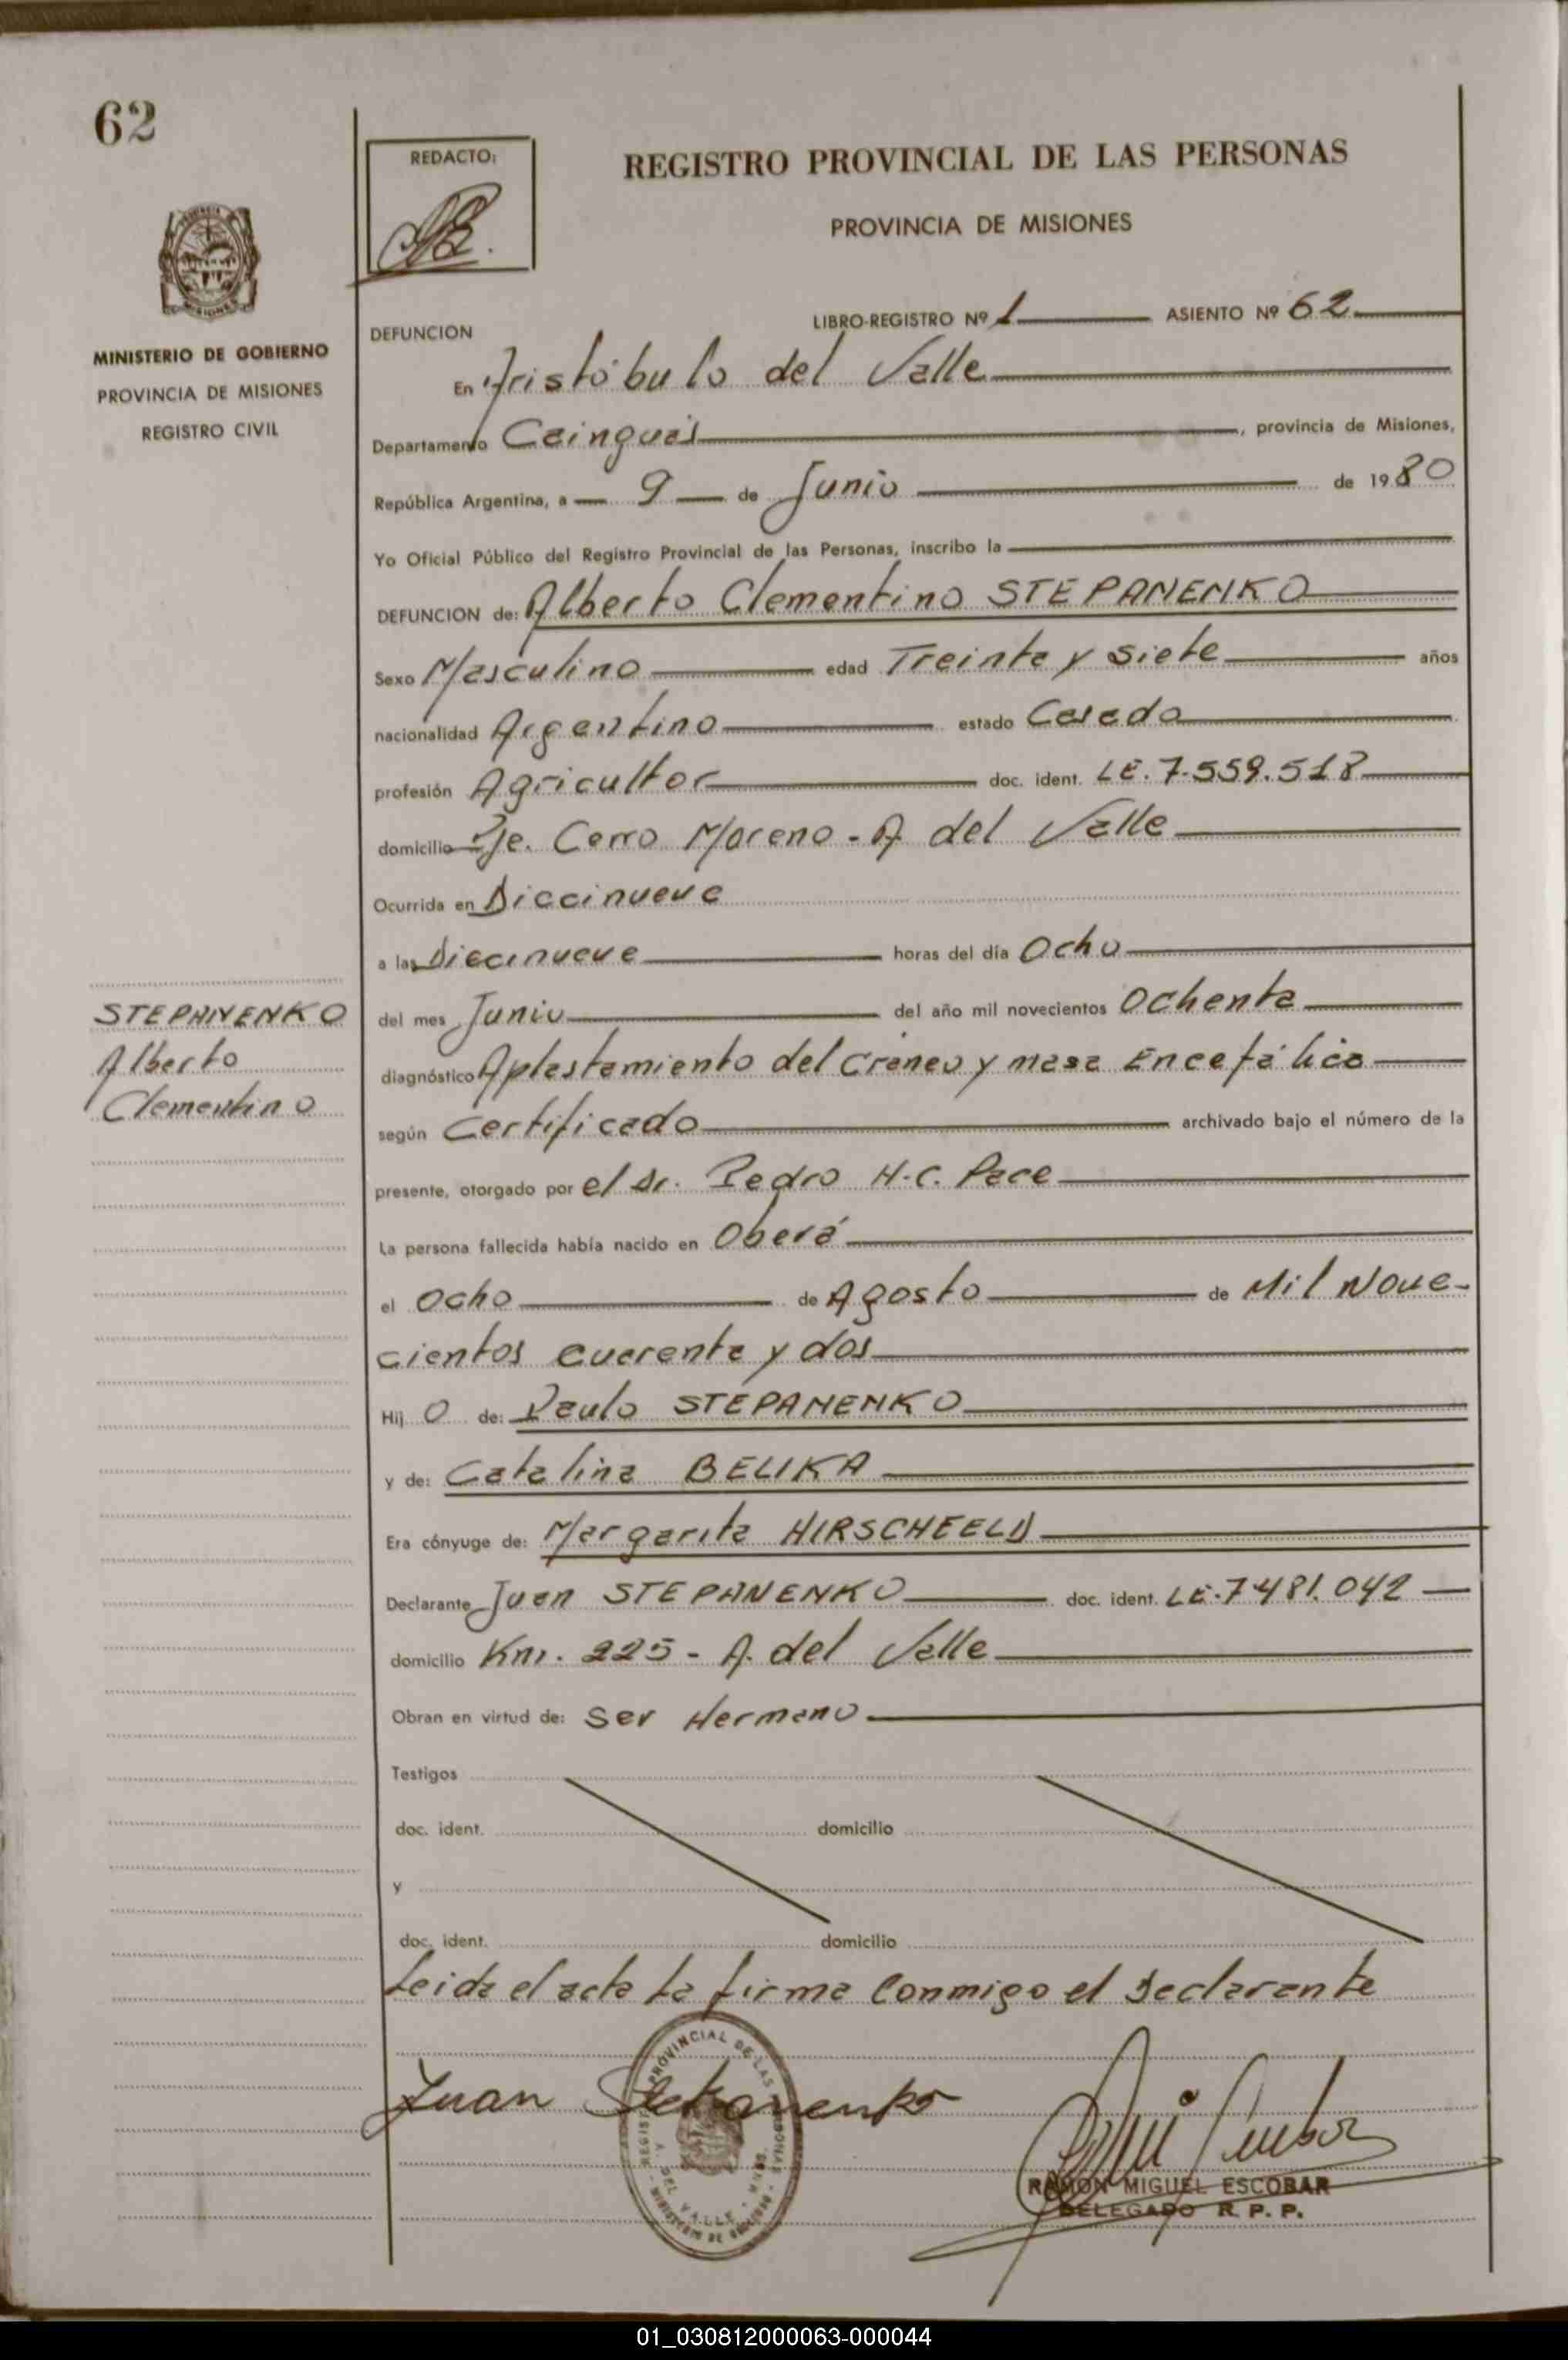 62
REDACTO:
REGISTRO PROVINCIAL DE LAS PERSONAS
PROVINCIA DE MISIONES
MISIONES
MINISTERIO DE GOBIERNO
PROVINCIA DE MISIONES
REGISTRO CIVIL
LIBRO-REGISTRO Nº 1 ASIENTO Nº 62
DEFUNCION
En Aristóbulo del Valle
Departamento Cainguás, provincia de Misiones,
República Argentina, a 9 de Junio de 1980
Yo Oficial Público del Registro Provincial de las Personas, inscribo la
DEFUNCION de: Alberto Clementino STEPANENKO
Sexo Masculino edad Treinta y Siete años
nacionalidad Argentino estado Casado
profesión Agricultor doc. ident. LE. 7.559.518
domicilio Pje. Cerro Moreno - A del Valle
Ocurrida en Diecinueve
a las Diecinueve horas del día Ocho
del mes Junio del año mil novecientos Ochenta
diagnóstico Aplastamiento del Cráneo y masa Encefálica
según Certificado archivado bajo el número de la
presente, otorgado por el Dr. Pedro H.C. Pace
La persona fallecida había nacido en Oberá
el Ocho de Agosto de Mil Nove-
cientos cuarenta y dos
Hij o de: Paulo STEPANENKO
y de: Catalina BELIKA
Era cónyuge de: Margarita HIRSCHEELD
Declarante Juan STEPANENKO doc. ident. LE. 7.481.042
domicilio Km. 225 - A. del Valle
Obran en virtud de: Ser Hermano
Testigos
doc. ident. domicilio
y
doc. ident. domicilio
Leida el acta la firma Conmigo el Declarante
STEPANENKO
Alberto
Clementino
Juan Stepanenko
REGISTRO PROVINCIAL DE LAS PERSONAS
A. DEL VALLE - MNES.
MINISTERIO DE GOBIERNO
RAMON MIGUEL ESCOBAR
DELEGADO R. P. P.
01_030812000063-000044